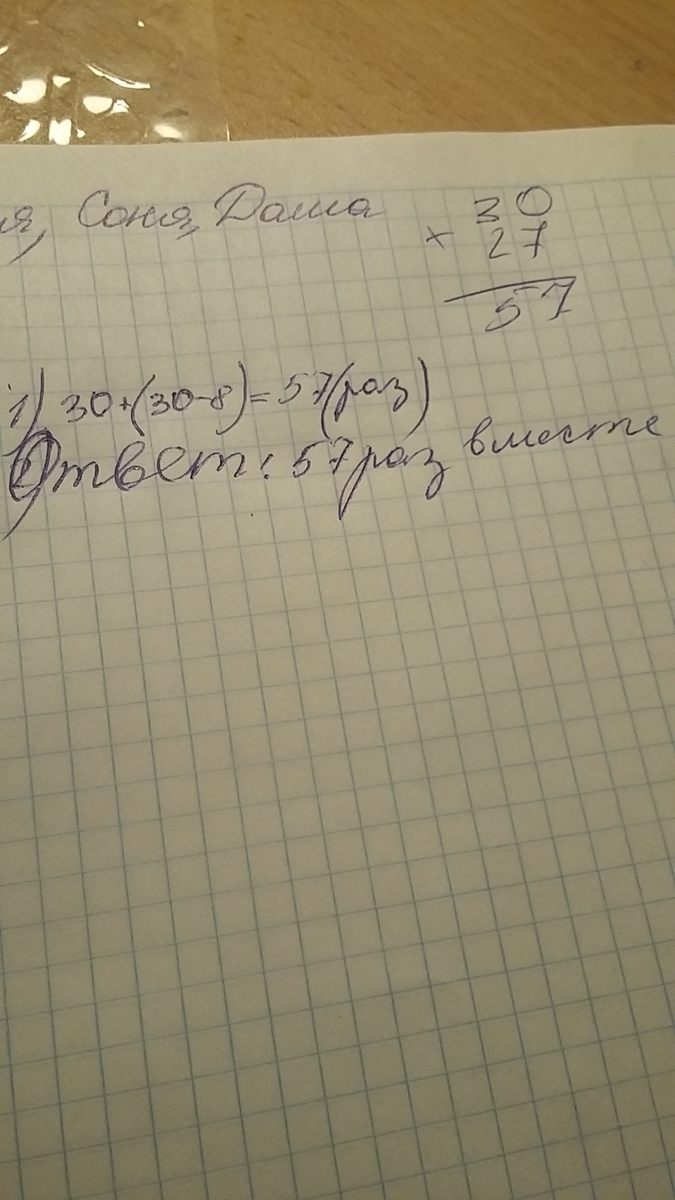 я, Соня, Даша
30
× 27
57
1) 30+(30-8)=57(раз)
Ответ: 57 раз вместе